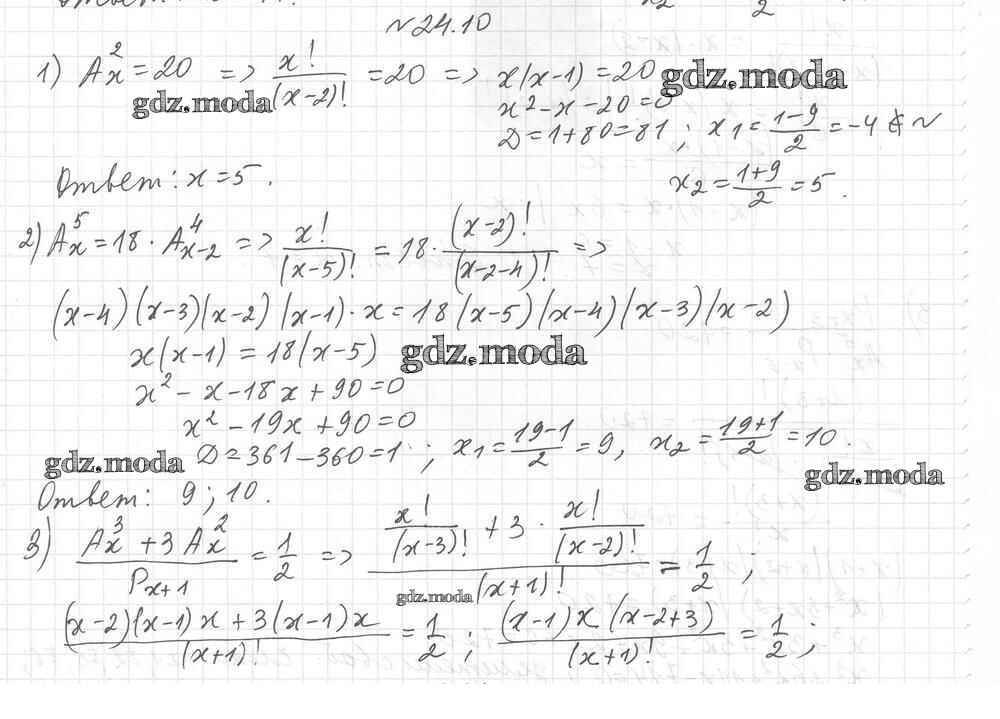 №24.10
1) A_x^2 = 20 => x!/(x-2)! = 20 => x(x-1) = 20
gdz.moda
gdz.moda
x² - x - 20 = 0
D = 1 + 80 = 81 ; x₁ = (1-9)/2 = -4 ∉ N
x₂ = (1+9)/2 = 5.
Ответ: x = 5.
2) A_x^5 = 18 · A_{x-2}^4 => x!/(x-5)! = 18 · (x-2)!/(x-2-4)! =>
(x-4)(x-3)(x-2)(x-1)·x = 18(x-5)(x-4)(x-3)(x-2)
x(x-1) = 18(x-5)
gdz.moda
x² - x - 18x + 90 = 0
x² - 19x + 90 = 0
D = 361 - 360 = 1 ; x₁ = (19-1)/2 = 9, x₂ = (19+1)/2 = 10.
gdz.moda
gdz.moda
Ответ: 9 ; 10.
3) (A_x^3 + 3A_x^2)/P_{x+1} = 1/2 => (x!/(x-3)! + 3 · x!/(x-2)!)/(x+1)! = 1/2 ;
gdz.moda
((x-2)(x-1)x + 3(x-1)x)/(x+1)! = 1/2 ; ((x-1)x(x-2+3))/(x+1)! = 1/2 ;